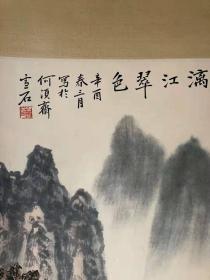 漓江翠色
辛酉
春三月
写於
何须斋
雪石